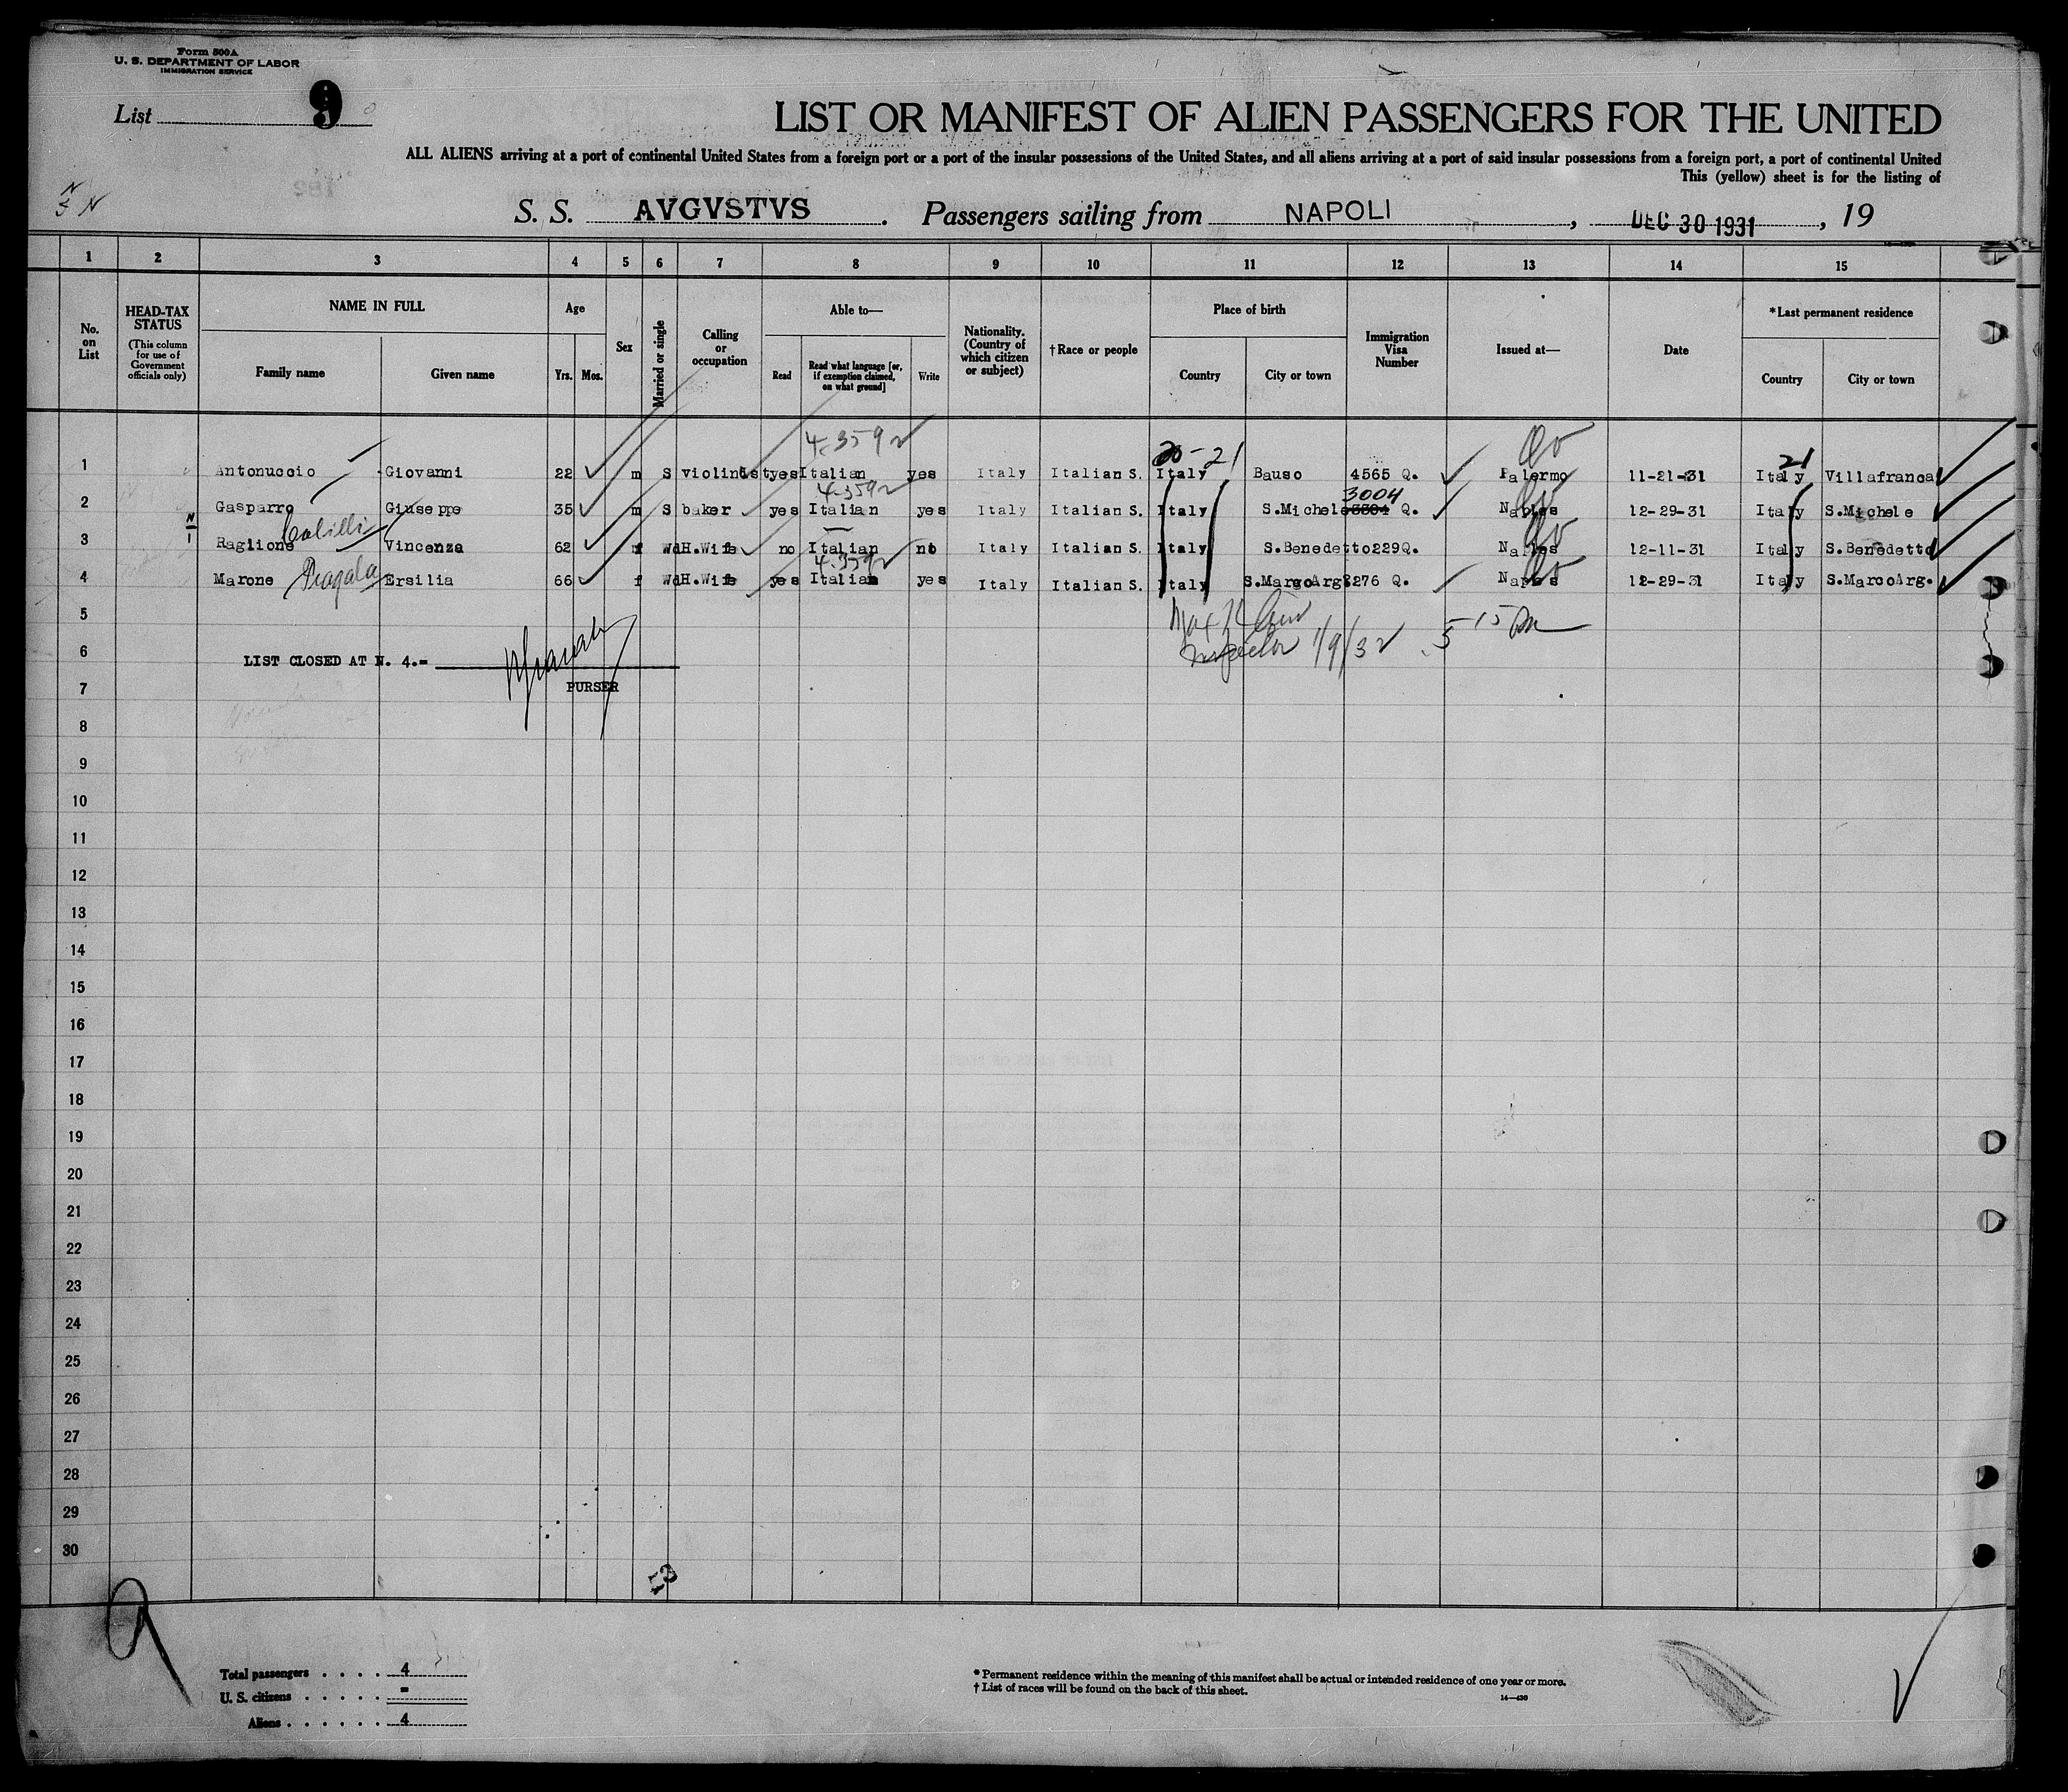 Form 500A
U. S. DEPARTMENT OF LABOR
IMMIGRATION SERVICE
List 9
LIST OR MANIFEST OF ALIEN PASSENGERS FOR THE UNITED
ALL ALIENS arriving at a port of continental United States from a foreign port or a port of the insular possessions of the United States, and all aliens arriving at a port of said insular possessions from a foreign port, a port of continental United
This (yellow) sheet is for the listing of
S. S. AVGVSTVS. Passengers sailing from NAPOLI, DEC 30 1931, 19
1 2 3 4 5 6 7 8 9 10 11 12 13 14 15
No. on List
HEAD-TAX STATUS
(This column for use of Government officials only)
NAME IN FULL
Family name Given name
Age
Yrs. Mos.
Sex
Married or single
Calling or occupation
Able to—
Read Read what language [or, if exemption claimed, on what ground] Write
Nationality. (Country of which citizen or subject)
†Race or people
Place of birth
Country City or town
Immigration Visa Number
Issued at—
Date
*Last permanent residence
Country City or town
4-3592 20-21 21
1 Antonuccio Giovanni 22 m S violinist yes Italian yes Italy Italian S. Italy Bauso 4565 Q. Palermo 11-21-31 Italy Villafranca
4-3592 3004
2 Gasparro Giuseppe 35 m S baker yes Italian yes Italy Italian S. Italy S.Michele 3304 Q. Naples 12-29-31 Italy S.Michele
3 Raglione Vincenza 62 f Wd H.Wife no Italian no Italy Italian S. Italy S.Benedetto 229Q. Naples 12-11-31 Italy S.Benedetto
4-3592
4 Marone Ersilia 66 f Wd H.Wife yes Italian yes Italy Italian S. Italy S.MarcoArg. 276 Q. Naples 12-29-31 Italy S.MarcoArg.
5
Inspector 1/9/32 5 15 Pm
6 LIST CLOSED AT N. 4.=
7 PURSER
8
9
10
11
12
13
14
15
16
17
18
19
20
21
22
23
24
25
26
27
28
29
30
9
Total passengers . . . . 4
U. S. citizens . . . . . =
Aliens . . . . . . 4
* Permanent residence within the meaning of this manifest shall be actual or intended residence of one year or more.
† List of races will be found on the back of this sheet.
14—430